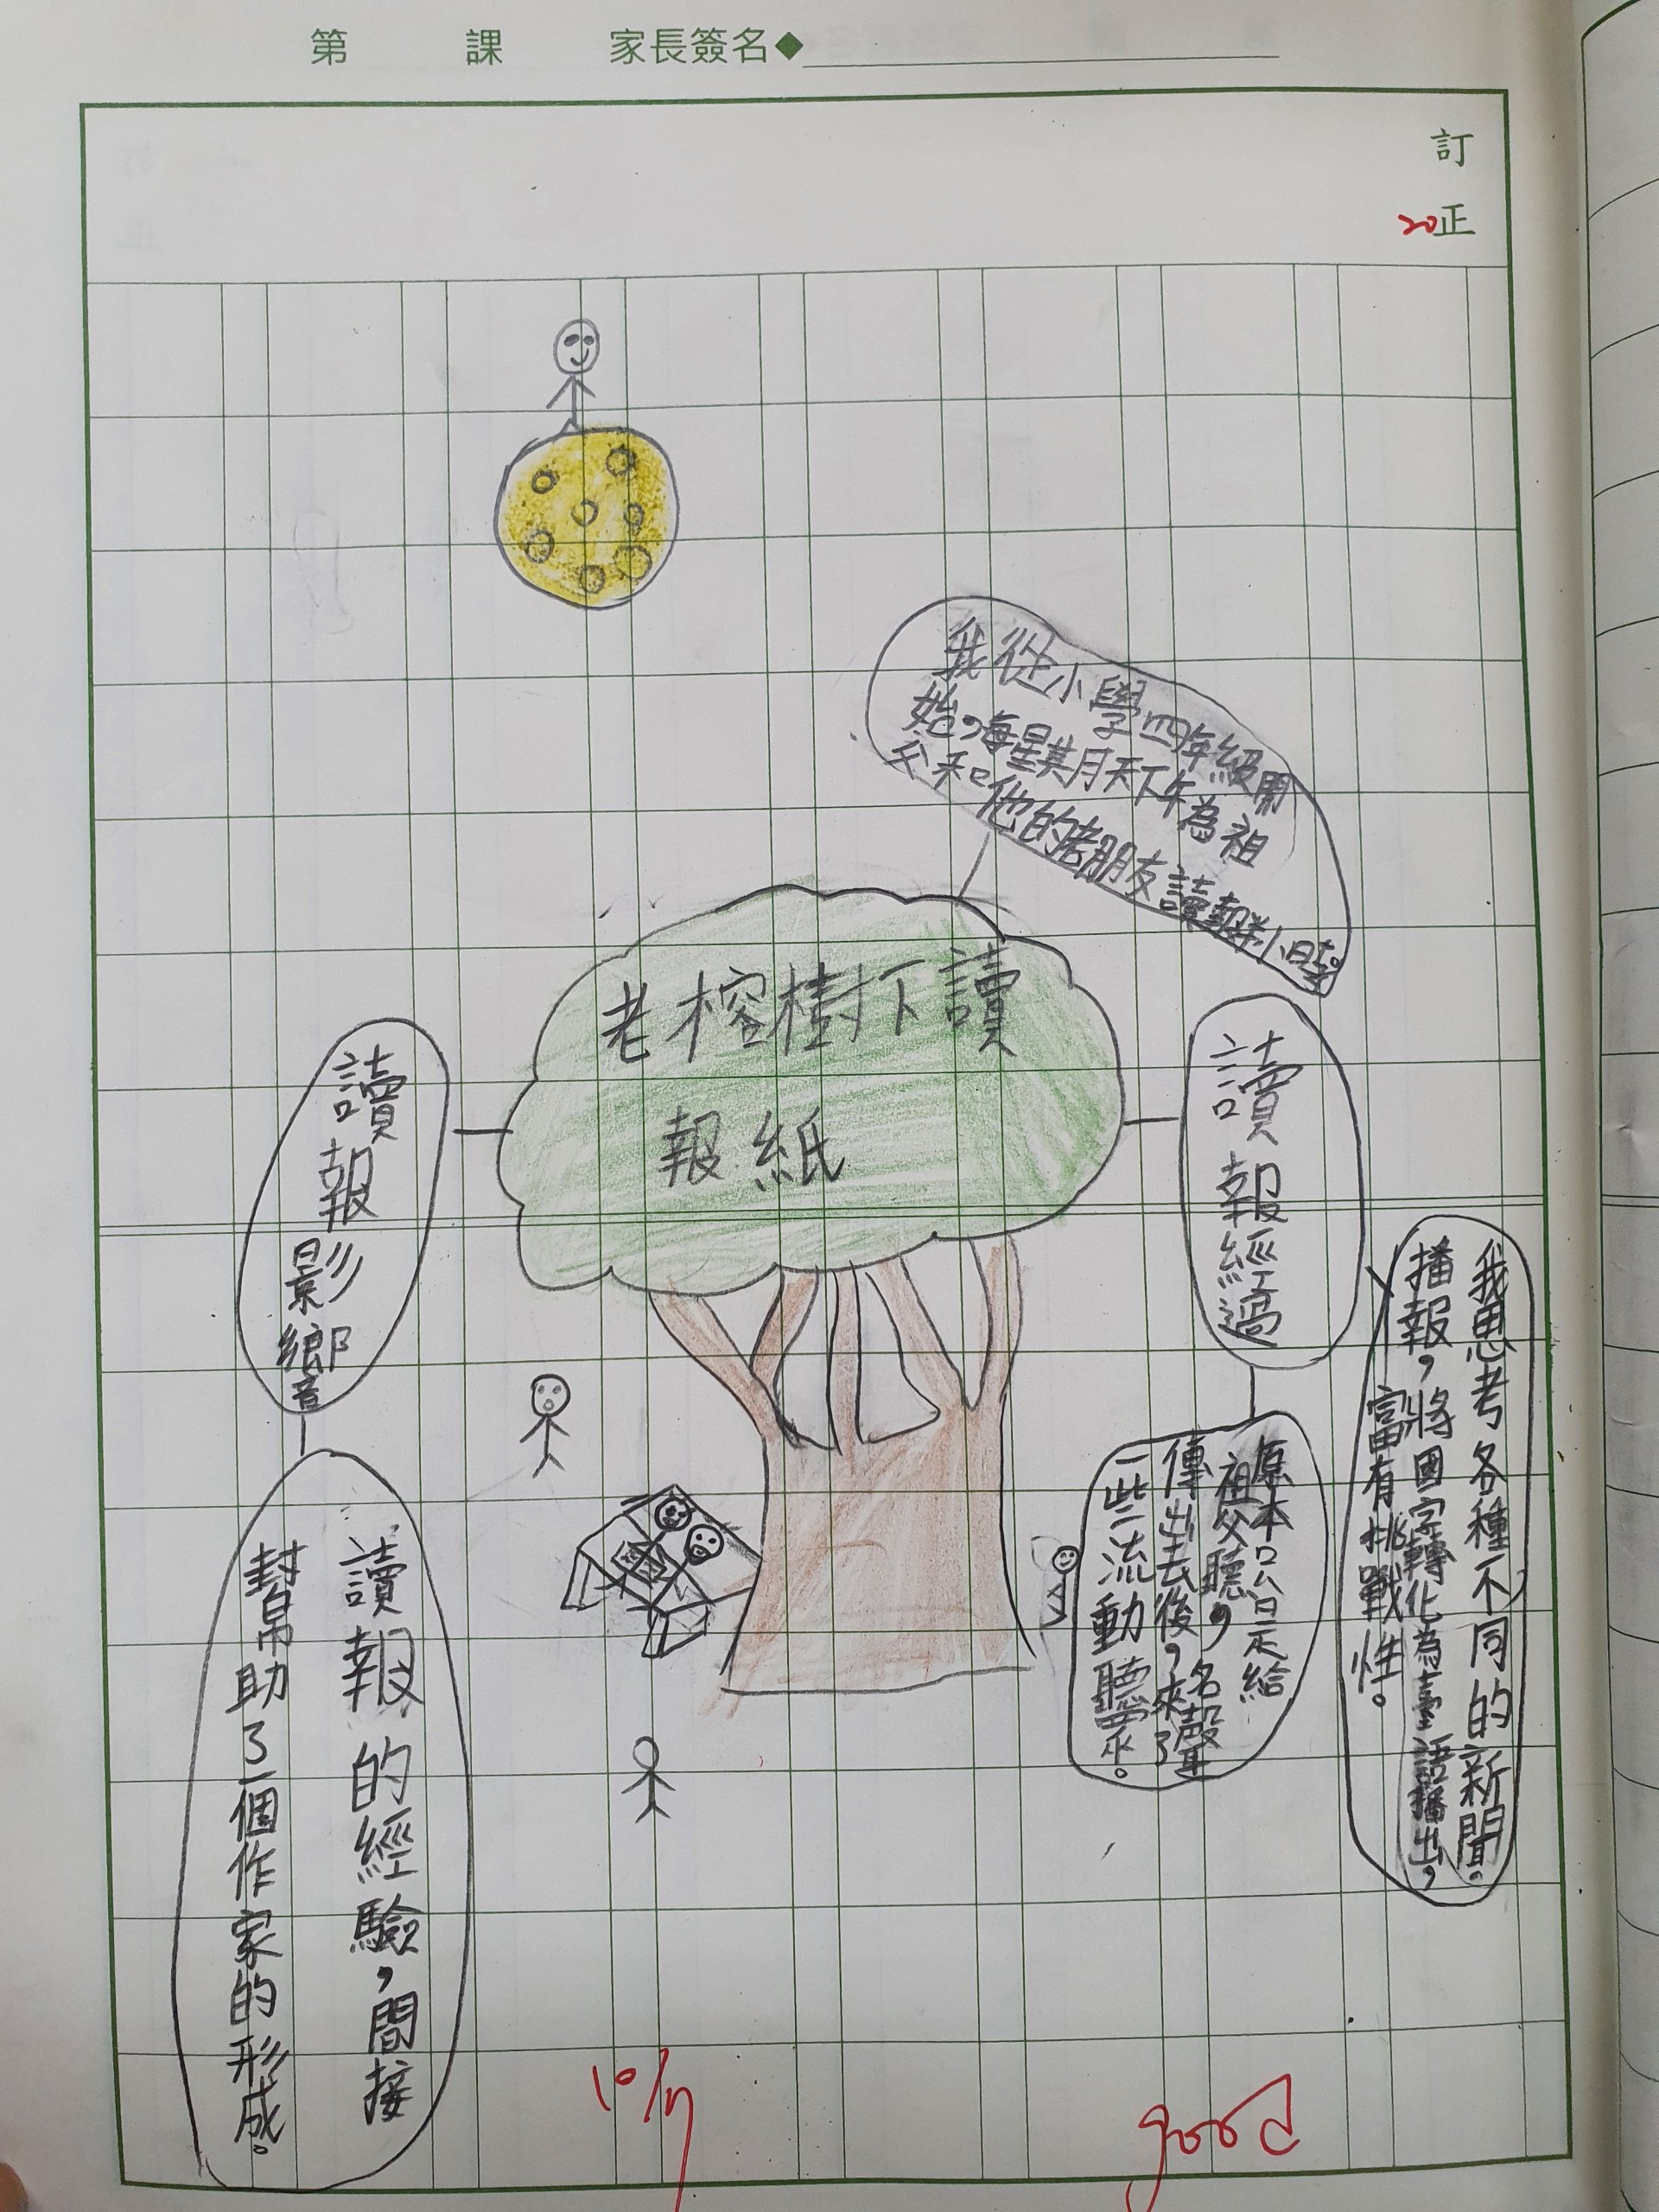 第　課　家長簽名◆
訂正
20
我從小學四年級開
始，每星期天下午為祖
父和他的老朋友讀報半小時。
老榕樹下讀
報紙
讀報經過
我思考各種不同的新聞。
播報，將國字轉化為臺語播出，
富有挑戰性。
原本只是給
祖父聽，名聲
傳出去後，來了
一些流動聽眾。
讀報影響
讀報的經驗，間接
幫助了一個作家的形成。
good